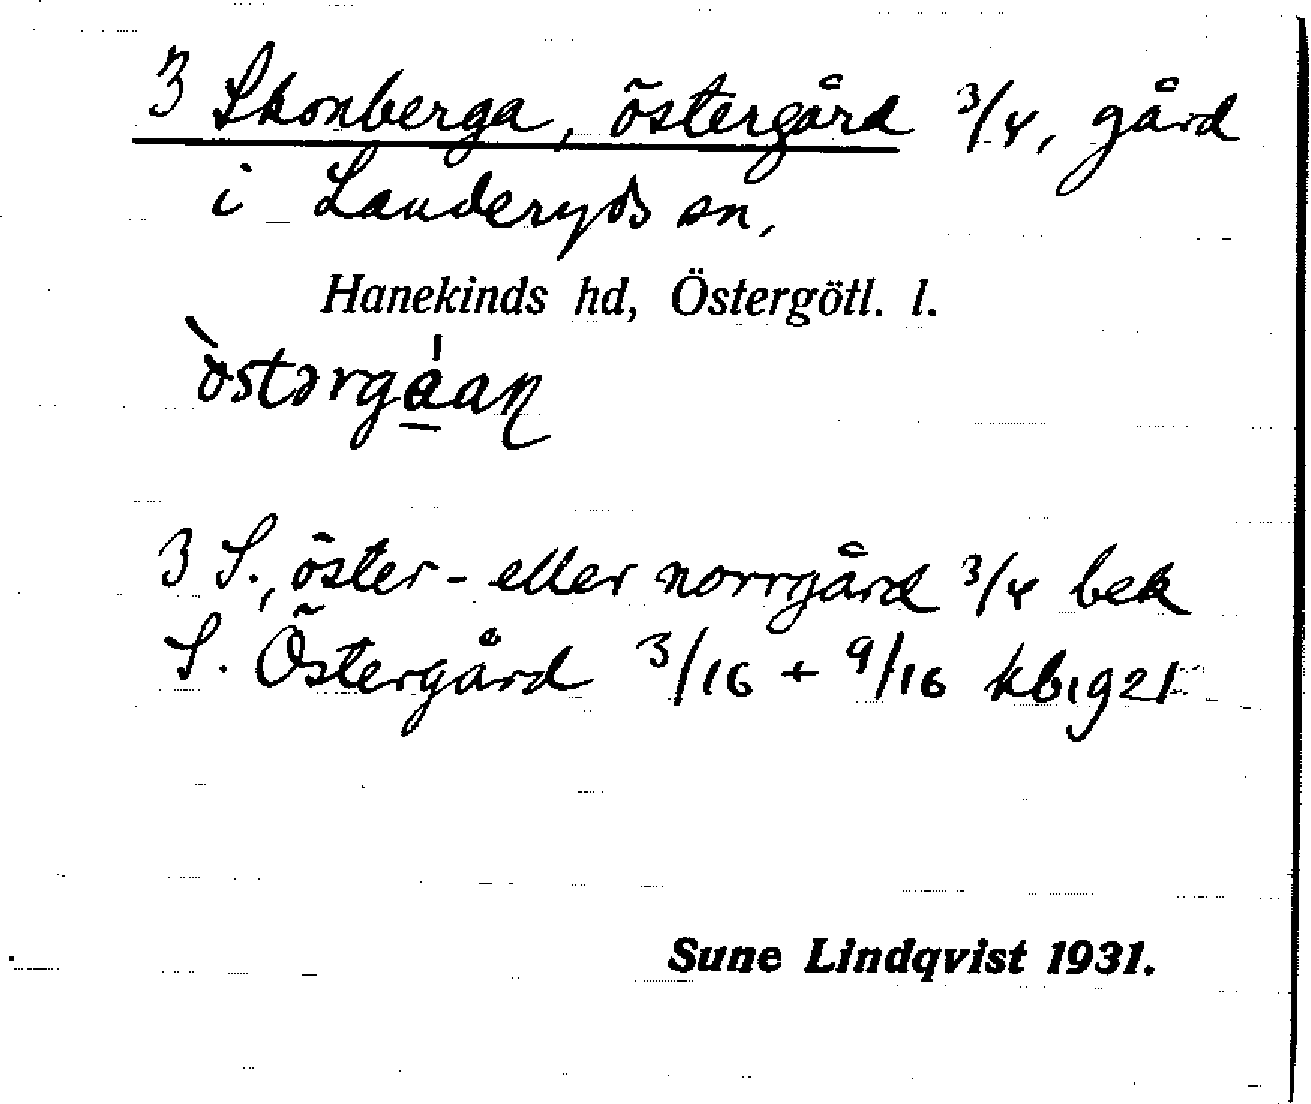 3 Skonberga, östergård 3/4, gård
i Landeryds sn,
Hanekinds hd, Östergötl. l.
3 S., öster- eller norrgård 3/4 bek
S. Östergård 3/16 + 9/16 kb 1921
Sune Lindqvist 1931.